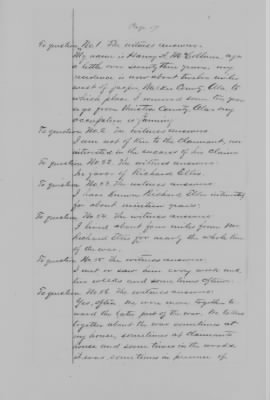 Page 17
To question No. 1 The witness answers.
My name is Harvey L. McCollum, age
a little over seventy three years, my
residence is now about twelve miles
west of Jasper, Walker County Ala. to
which place I removed some ten years
ago from Winston County, Ala. my
occupation is farming
To question No. 2. The witness answers
I am not of kin to the claimant, nor
interested in the success of his claim
To question No. 22. The witness answers
In favor of Richard Ellis.
To question No. 23. The witness answers
I have known Richard Ellis intimately
for about nineteen years.
To question No. 24. The witness answers
I lived about four miles from Mr.
Richard Ellis for nearly the whole time
of the war.
To question No. 25. The witness answers.
I met or saw him every week and
two weeks and some times oftener.
To question No. 26. The witness answers:
Yes, often. We were more together to
ward the later part of the war. We talked
together about the war sometimes at
my house, sometimes at claimants
house and some times in the woods.
I was sometimes in presence of